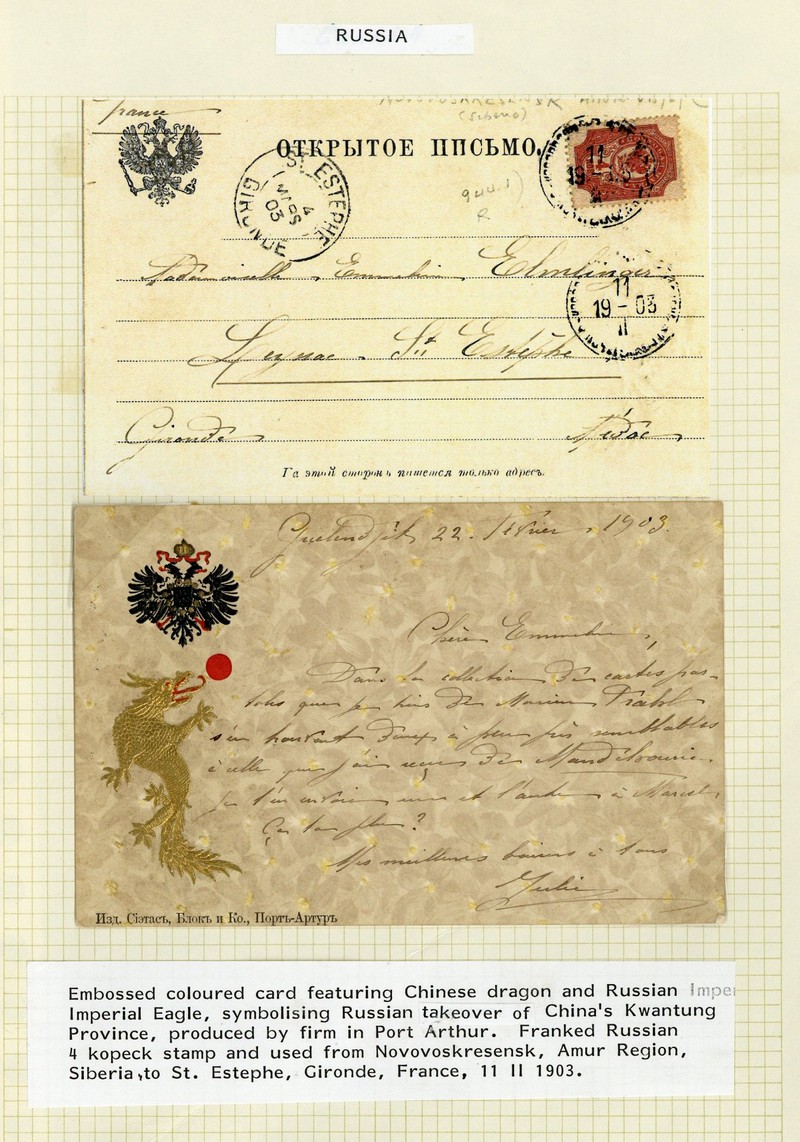 RUSSIA
france
NOVOVOSKRESENSK
ОТКРЫТОЕ ПИСЬМО.
11
19-03
ST ESTEPHE
4
MARS
03
GIRONDE
Mademoiselle Emmeline Elmlinger
11
19-03
II
Leyssac. St Estèphe
Gironde Médoc
На этой сторонѣ пишется только адресъ.
Guelendjik 22. Février 1903.
Chère Emmeline,
Dans la collection de cartes pos-
tales que je tiens de
s'en trouvent deux à peu près semblables
à celle que j'ai reçue de Mandchourie.
Je t'en envoie une et l'autre à Marcel.
Ça te plu?
Mes meilleurs baisers à tous
Julie
Изд. Сіэтасъ, Блокъ и Ко., Портъ-Артуръ
Embossed coloured card featuring Chinese dragon and Russian Imper
Imperial Eagle, symbolising Russian takeover of China's Kwantung
Province, produced by firm in Port Arthur. Franked Russian
4 kopeck stamp and used from Novovoskresensk, Amur Region,
Siberia, to St. Estephe, Gironde, France, 11 II 1903.